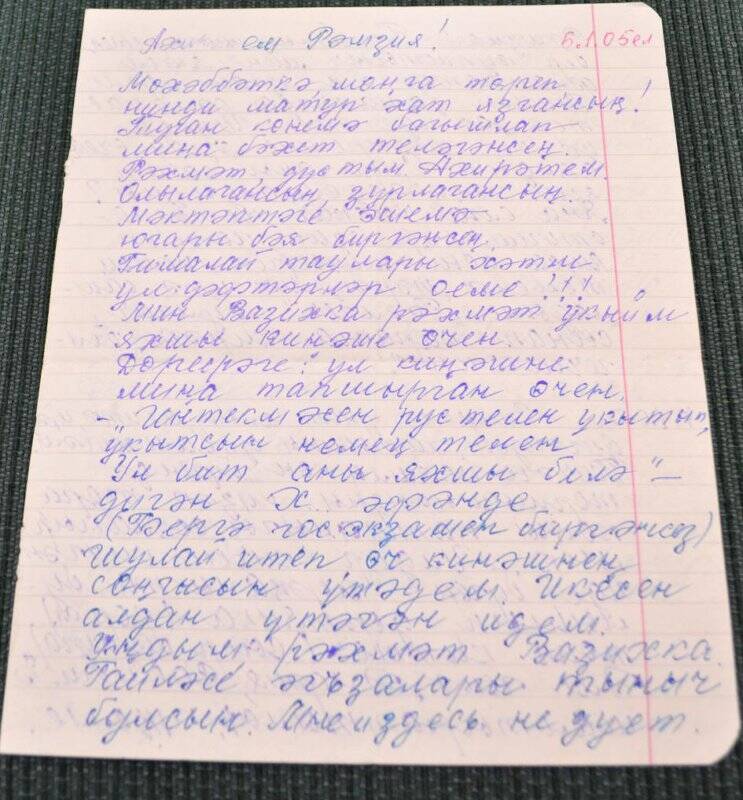 Ахирәтем Рәмзия! 6.1.05ел
Мәхәббәткә, моңга төреп,
нинди матур хат язгансың!
Туган көнемә багышлап
миңа бәхет теләгәнсең.
Рәхмәт дустым. Ахирәтем.
Олылагансың, зурлагансың.
Мәктәптәге эшемә
югары бәя биргәнсең
Гималай таулары хәтле
ул дәфтәрләр өеме!!!
Мин Вазихка рәхмәт укыйм
яхшы киңәше өчен
Дөресрәге: ул киңәшне
миңа тапшырган өчен,
-„Интекмәсен рус телен укытып,
укытсын немец телен
Ул бит аны яхшы белә"-
дигән Х. әфәнде
(Бергә госэкзамен биргәнсез)
шулай итеп өч киңәшнең
соңгысын үтәдем. Икесен
алдан үтәгән идем.
Уңдым, рәхмәт Вазихка.
Гаилә әгъзалары тыныч
булсын. Мне и здесь не дует.